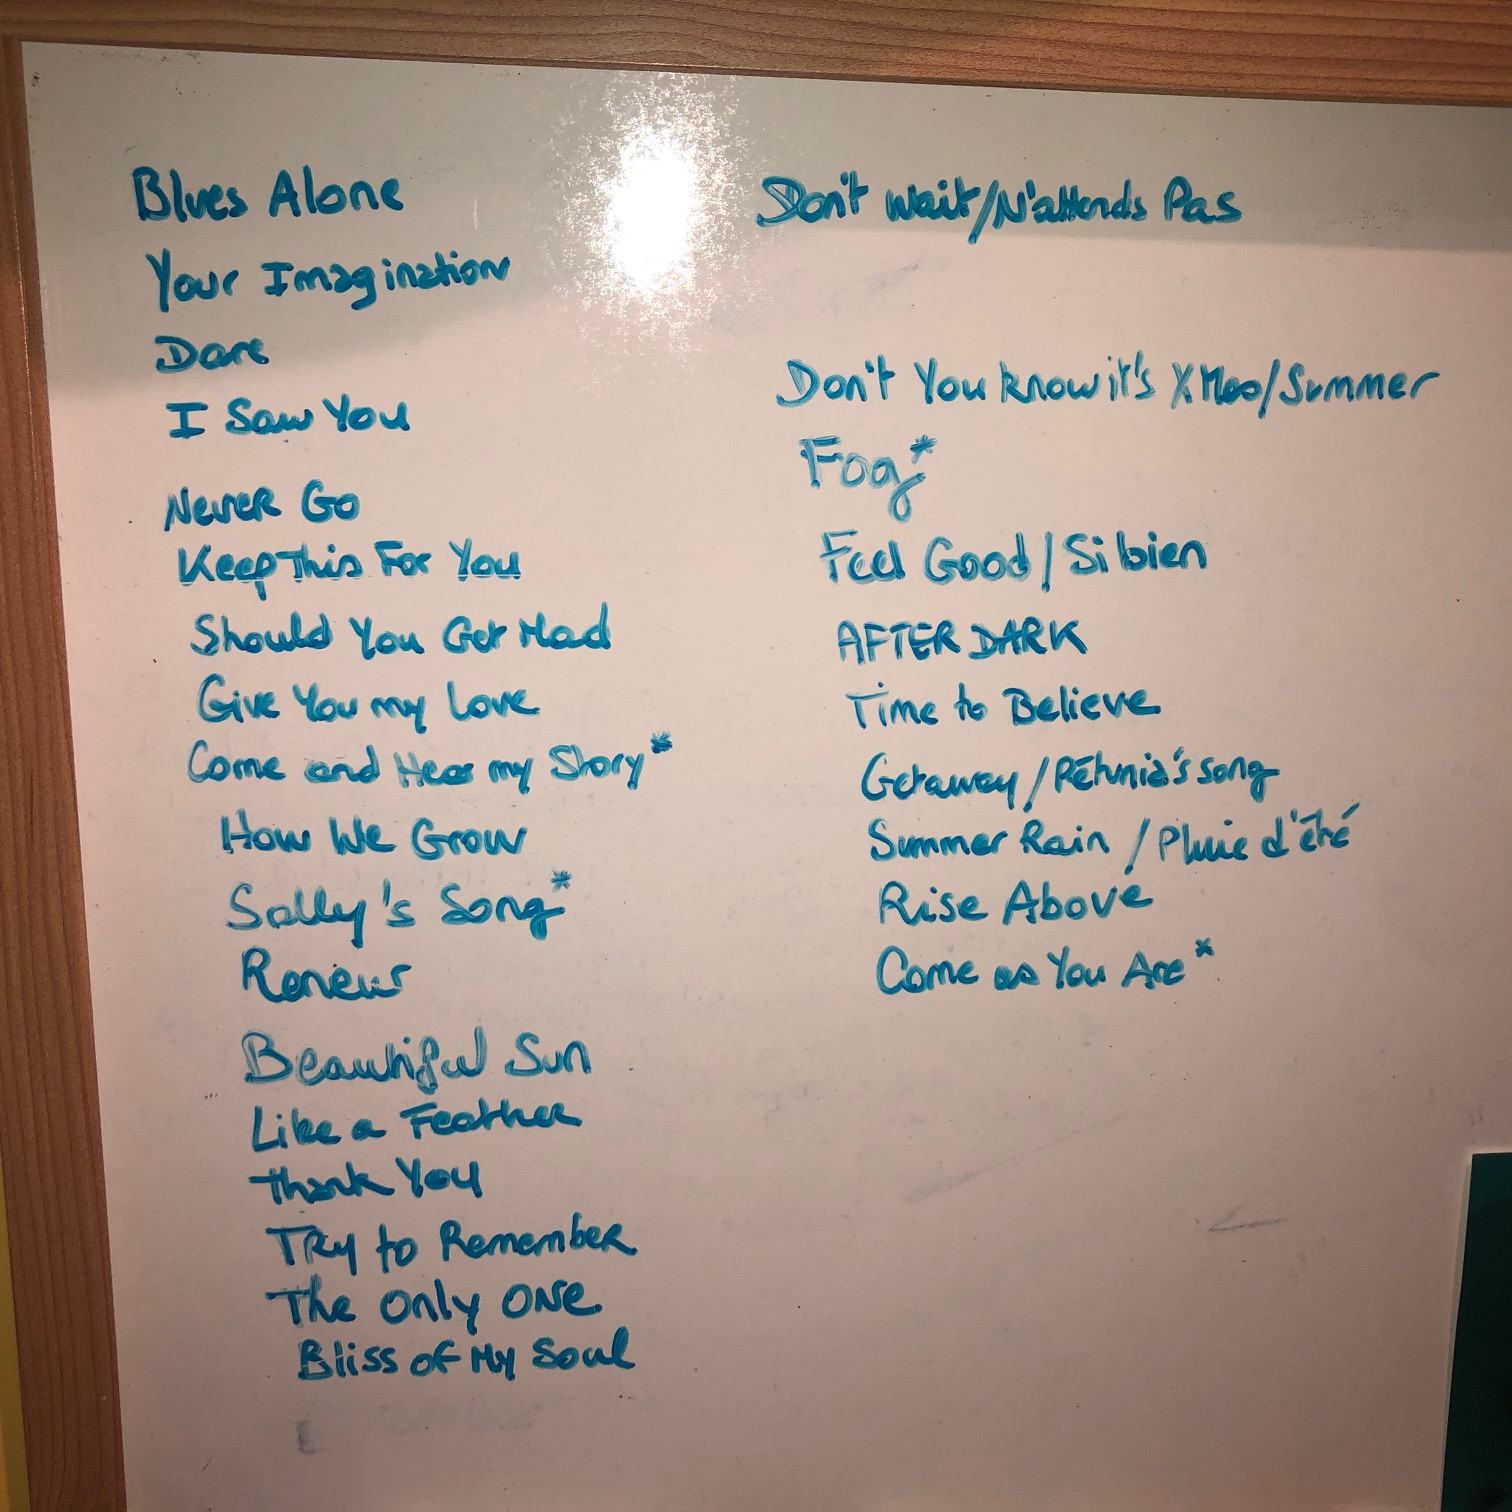 Blues Alone
Your Imagination
Dare
I Saw You
Never Go
Keep This For You
Should You Get Mad
Give You my Love
Come and Hear my Story*
How We Grow
Sally's Song*
Renew
Beautiful Sun
Like a Feather
Thank You
Try to Remember
The Only One
Bliss of My Soul
Don't Wait/N'attends Pas
Don't You know it's XMas/Summer
Fog*
Feel Good / Si bien
AFTER DARK
Time to Believe
Getaway / Pétunia's song
Summer Rain / Pluie d'été
Rise Above
Come as You Are*